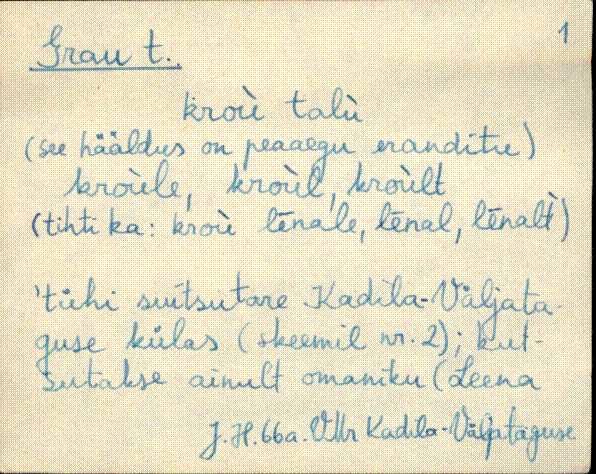 1
Grau t.
kroù talù
(see hääldus on peaaegu eranditu)
kroùle, kroùl, kroùlt
(tihti ka: kroù lēnale, lēnal, lēnalt)
'tühi suitsutare Kadila-Väljata-
guse külas (skeemil nr. 2); kut-
sutakse ainult omaniku (Leena
J.H. 66a. VMr Kadila-Väljataguse